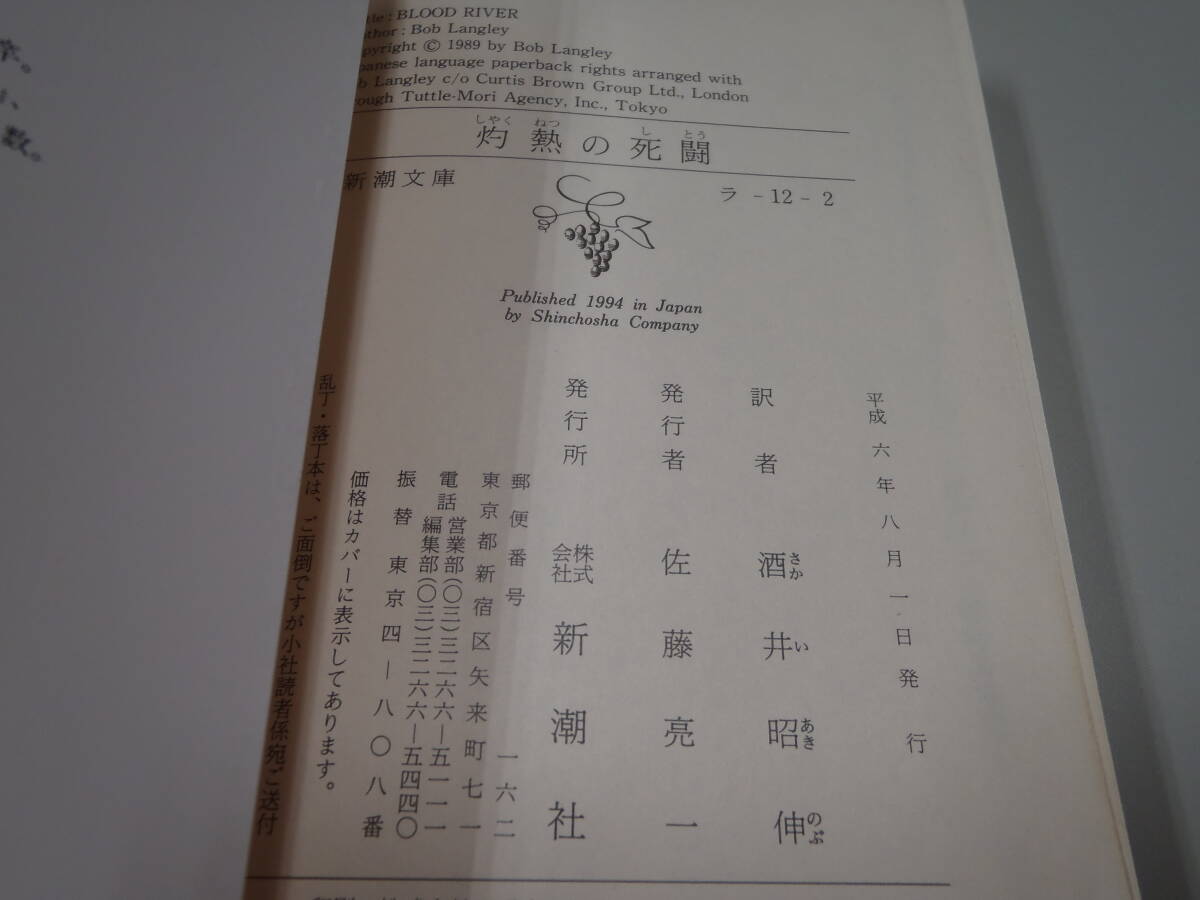 BLOOD RIVER
Bob Langley
© 1989 by Bob Langley
language paperback rights arranged with
Langley c/o Curtis Brown Group Ltd., London
Tuttle-Mori Agency, Inc., Tokyo
しやく ねつ し とう
灼熱の死闘
新潮文庫 ラ - 12 - 2
Published 1994 in Japan
by Shinchosha Company
平成六年八月一日発行
訳者 酒井昭伸
さか い あき のぶ
発行者 佐藤亮一
発行所 株式会社 新潮社
郵便番号 一六二
東京都新宿区矢来町七一
電話 営業部(〇三)三二六六―五一一一
編集部(〇三)三二六六―五四四〇
振替東京四―八〇八番
価格はカバーに表示してあります。
乱丁・落丁本は、ご面倒ですが小社読者係宛ご送付
数。